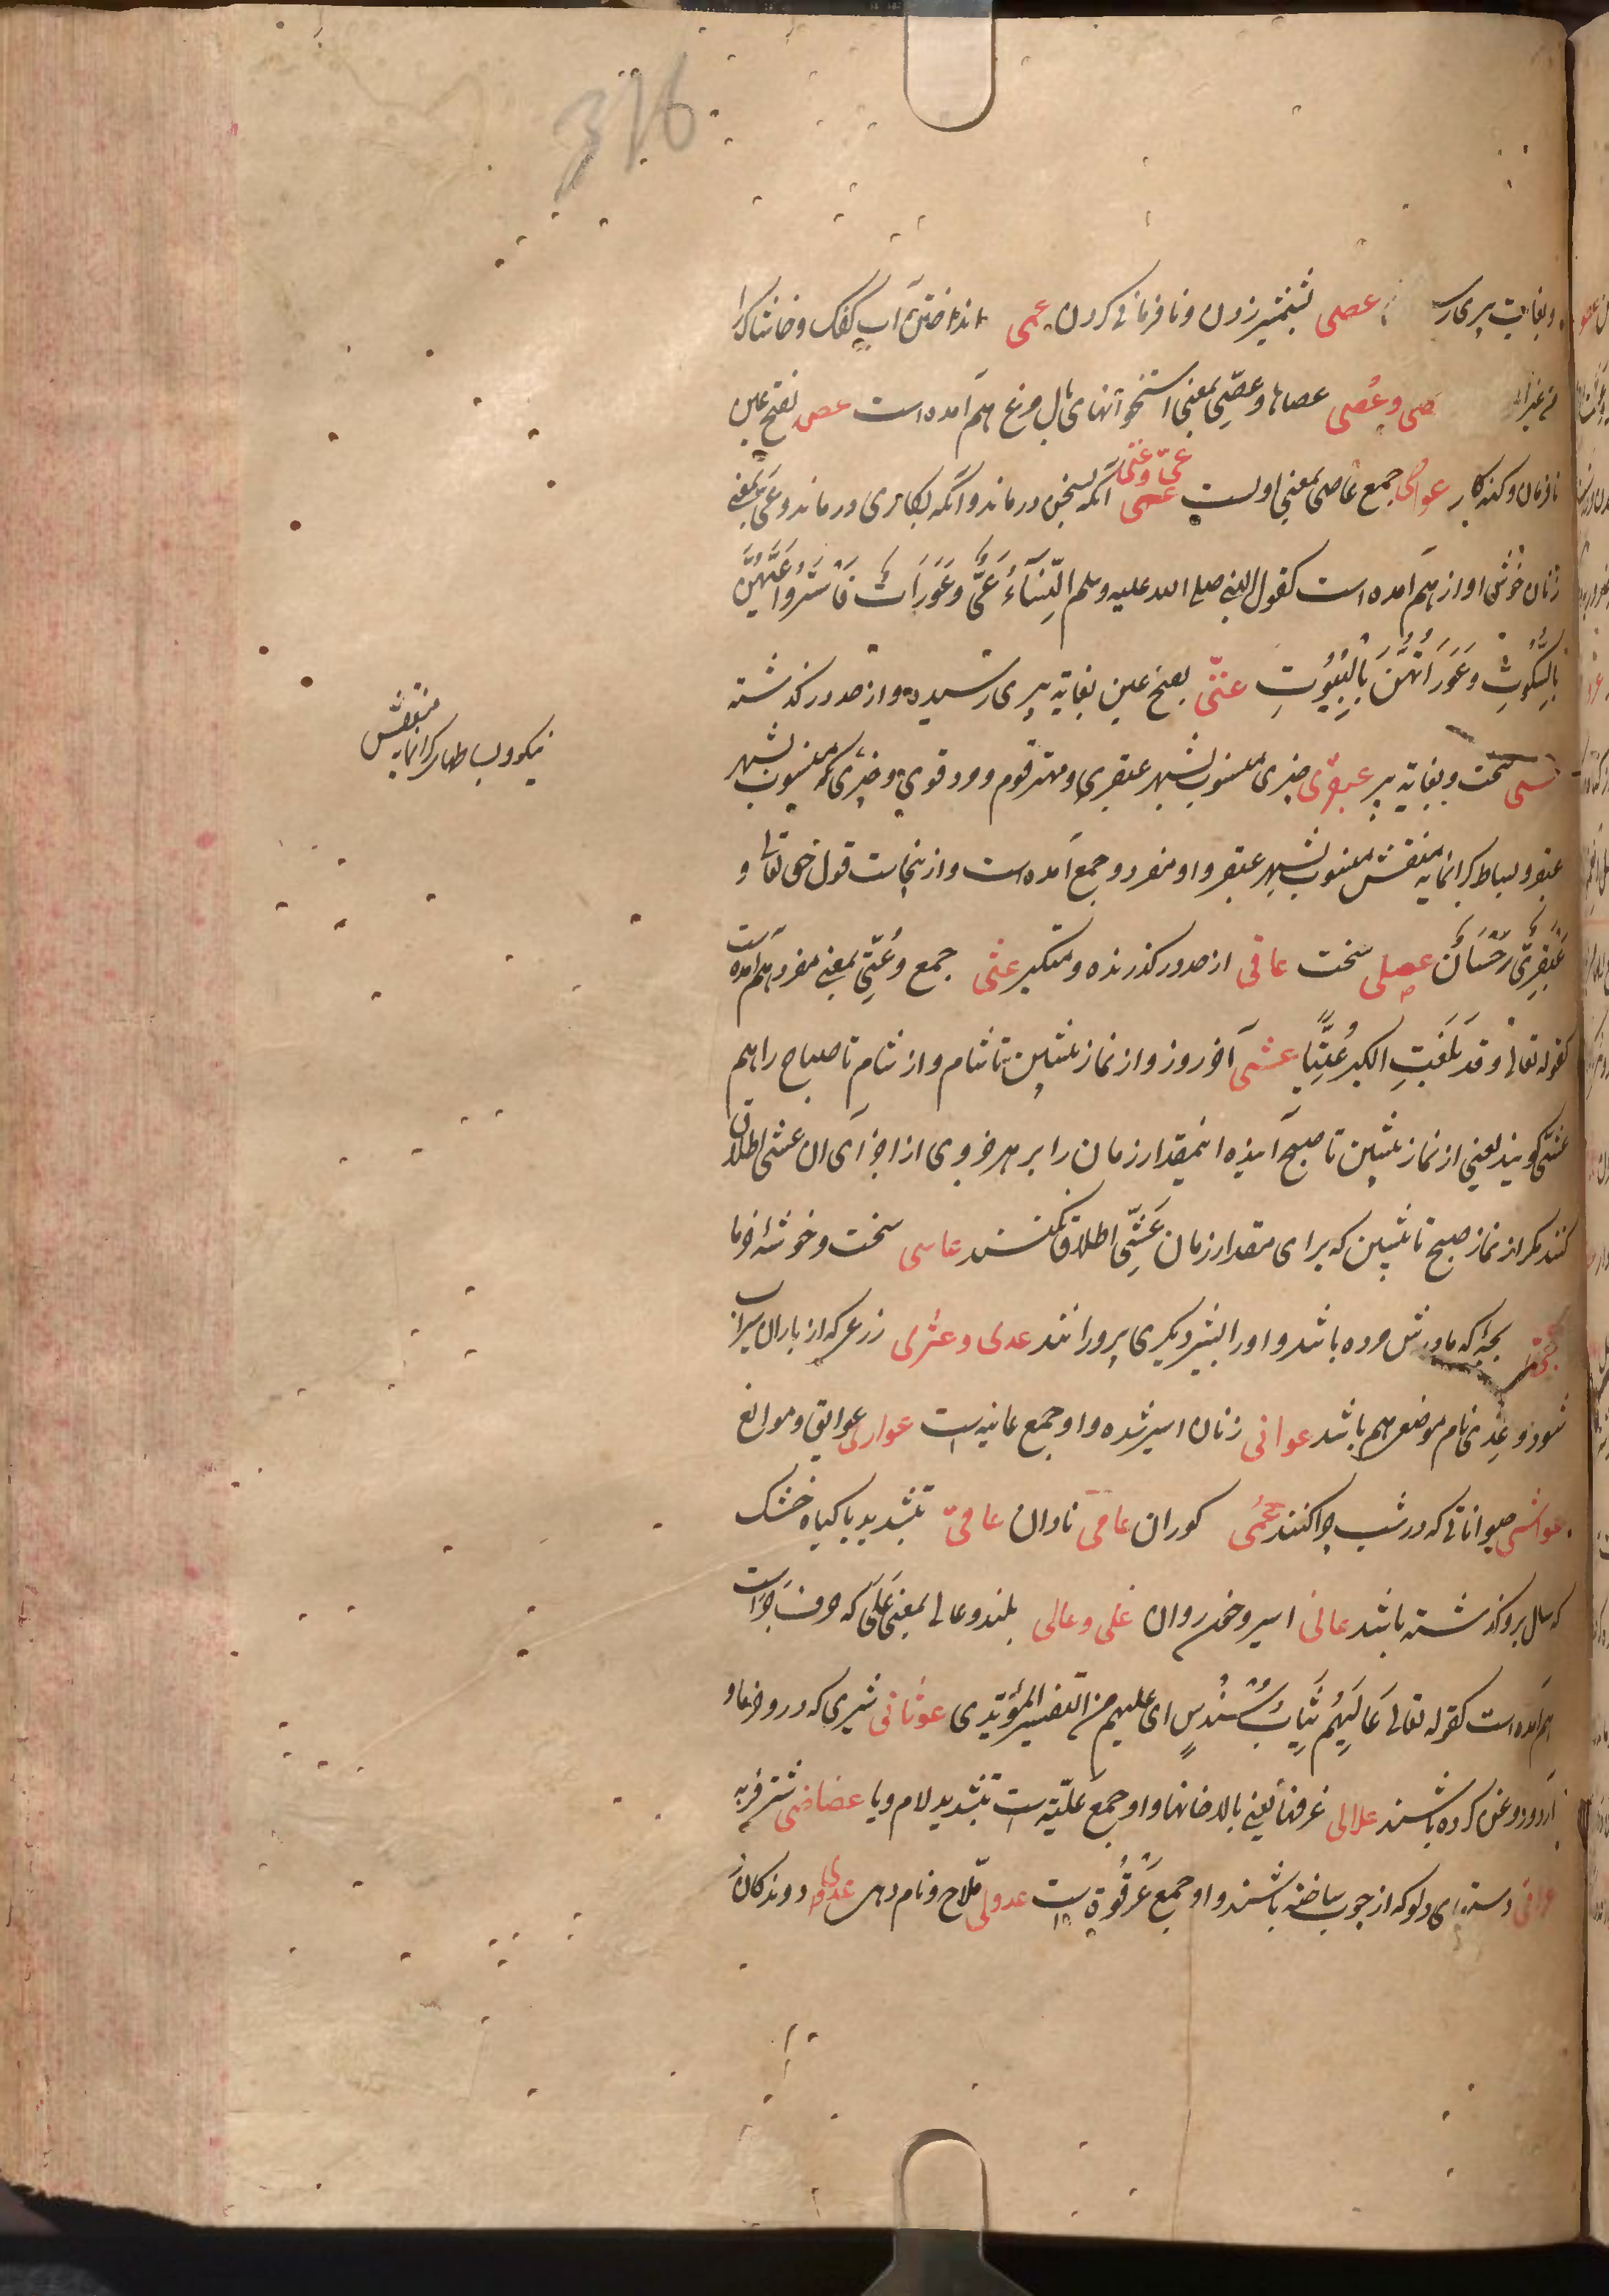 316
وبغایت پیری رسـ عصی بشمشیر زدن ونافرمانی کردن عمی انداختن آب کفک وخاشاک را
صی وعُصی عصاها وعصّی بمعنی استخوانهای بال مرغ هم آمده است عصی بفتح عین
نافرمان وکنه کار عواصی جمع عاصی بمعنی اولست عیّ وعیی آنکه بسخن درماند وآنکه بکاری درماند وعیّ بمعنی
زنان خوش اواز هم آمده است کقول النبی صلی الله علیه وسلم النِّسَآءُ عَیٌّ وعَوَرَاتٌ فَاسْتُرُوا عَیَّهُنَّ
بِالسُّکُوتِ وَعَوَرَاتَهُنَّ بِالْبُیُوتِ عتیّ بفتح عین بغایة پیری رسیده واز حد درکذشته
سخت وبغایة پیر عبقری چیزی منسوب بشهر عبقری ومهتر قوم ومرد قوی وچیزی که منسوب بشهر
عبقر وبساط کرانمایه منقش منسوب بشهر عبقر واو مفرد وجمع آمده است وازینجاست قول حق تعالی و
عَبْقَرِیٍّ حِسَانٍ عصلی سخت عاتی از حد درکذرنده ومتکبر عتی جمع وعُتِیّ بمعنی مفرد هم آمده است
کقوله تعالی وقد بَلَغْتُ الکبر عُتِیًّا عشی آخر روز واز نماز پشین تا شام واز شام تا صباح را هم
عشی کویند یعنی از نماز پشین تا صبح آینده اینمقدار زمان را بر هر جزوی از اجزآی ان عشی اطلاق
کنند مکر از نماز صبح تا پشین که برای مقدار زمان عَشِیّ اطلاق نکنند عاسی سخت وخوشۀ خرما
بچۀ که مادرش مرده باشد واورا بشیر دیکری پرورانند عدی وعثری زرعی که از باران سیراب
شود وعِدی نام موضعی هم باشد عوانی زنان اسیر شده واو جمع عانیه است عوادی عوایق وموانع
عواشی حیواناتی که در شب چرا کنند عُمی کوران عامی نادان عامیّ بتشدید یا کیاه خشک
که سال برو کذشته باشد عانی اسیر وخون روان علی وعالی بلند وعالی بمعنی عَلَی که حرف جر است
هم آمده است کقوله تعالی عَالِیَهُمْ ثِیَابُ سُنْدُسٍ ای علیهم من التفسیر الموئیدی عوثانی شیری که درو خرما و
آرد وروغن کرده باشند علالی غرفها یعنی بالاخانها واو جمع علّیّه است بتشدید لام ویا عضاضی شتر فربه
عراقی دستهای دلو که از چوب ساخته باشند واو جمع عَرْقُوَة است عدولی ملّاح ونام دهی عدوی دوندکان
منقش
نیکو وبساطهای کرانمایه